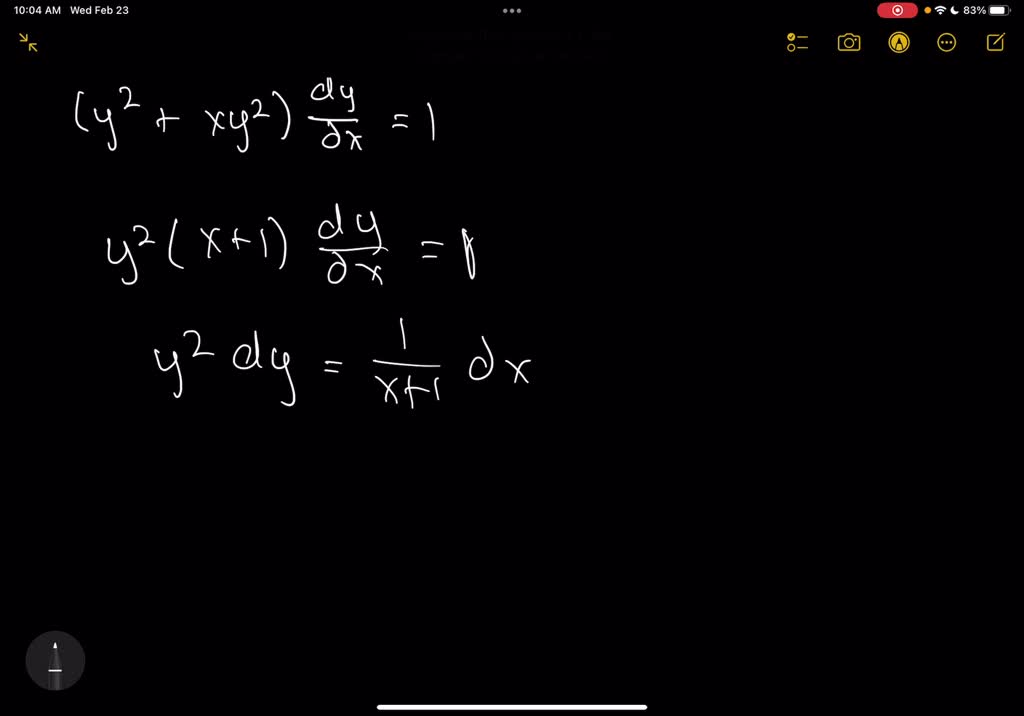 10:04 AM Wed Feb 23
83%
(y² + xy²) dy/dx = 1
y² (x+1) dy/dx = 1
y² dy = 1/(x+1) dx